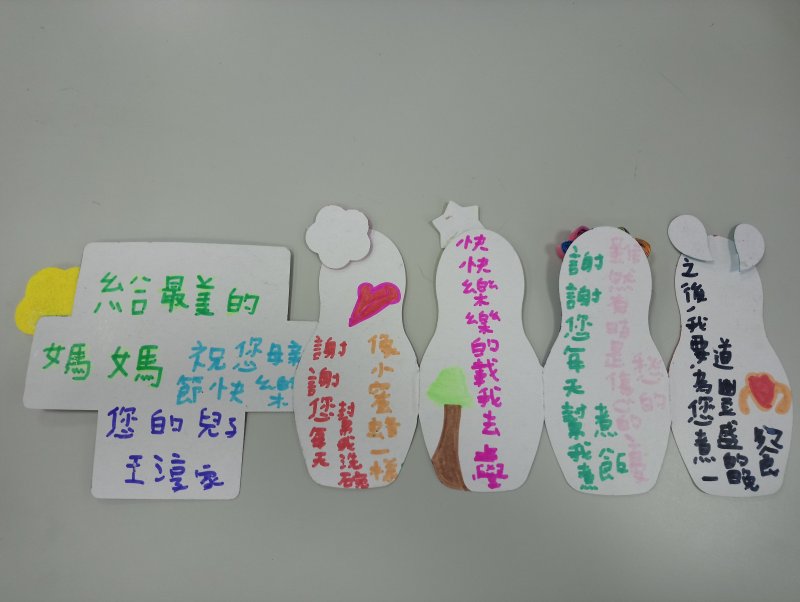 給最美的
媽媽
祝您母親
節快樂
您的兒子
王淳家
謝謝您每天
幫我洗碗
像小蜜蜂一樣
快快樂樂的載我去學
謝謝您每天幫我煮
煮飯
雖然有時是傷心的
愁的
之後,我要為您煮一
道豐盛的晚